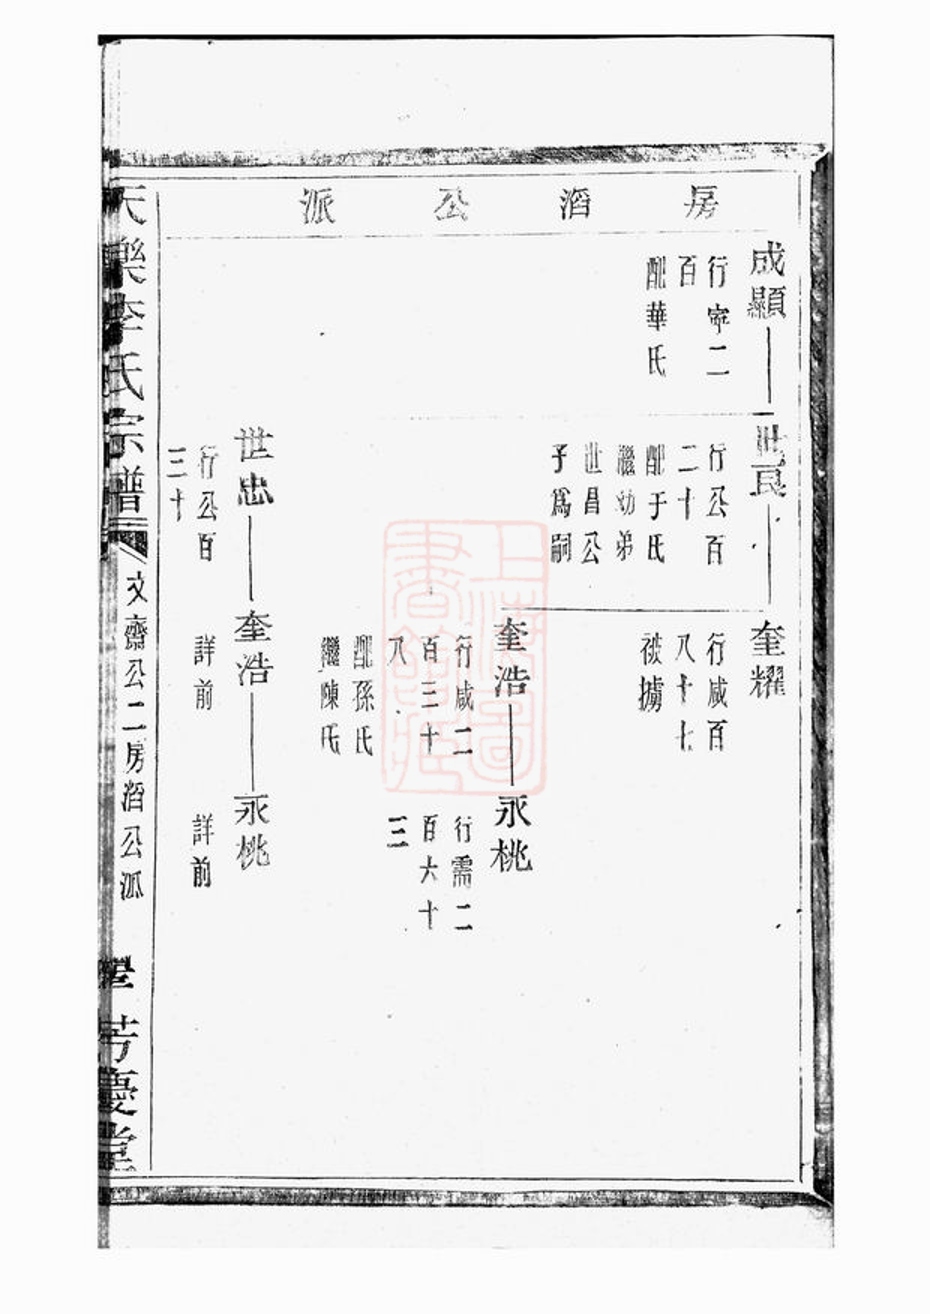 房滔公派
成顯
行寧二
百
配華氏
世良
行公百
二十
配于氏
繼幼弟
世昌公
子爲嗣
奎耀
行咸百
八十七
被擄
奎浩
行咸二
百三十
八
配孫氏
繼陳氏
永桃
行需二
百六十
三
世忠
行公百
三十
奎浩
詳前
永桃
詳前
天樂李氏宗譜
文齋公二房滔公派
芳慶堂
上海圖書館藏